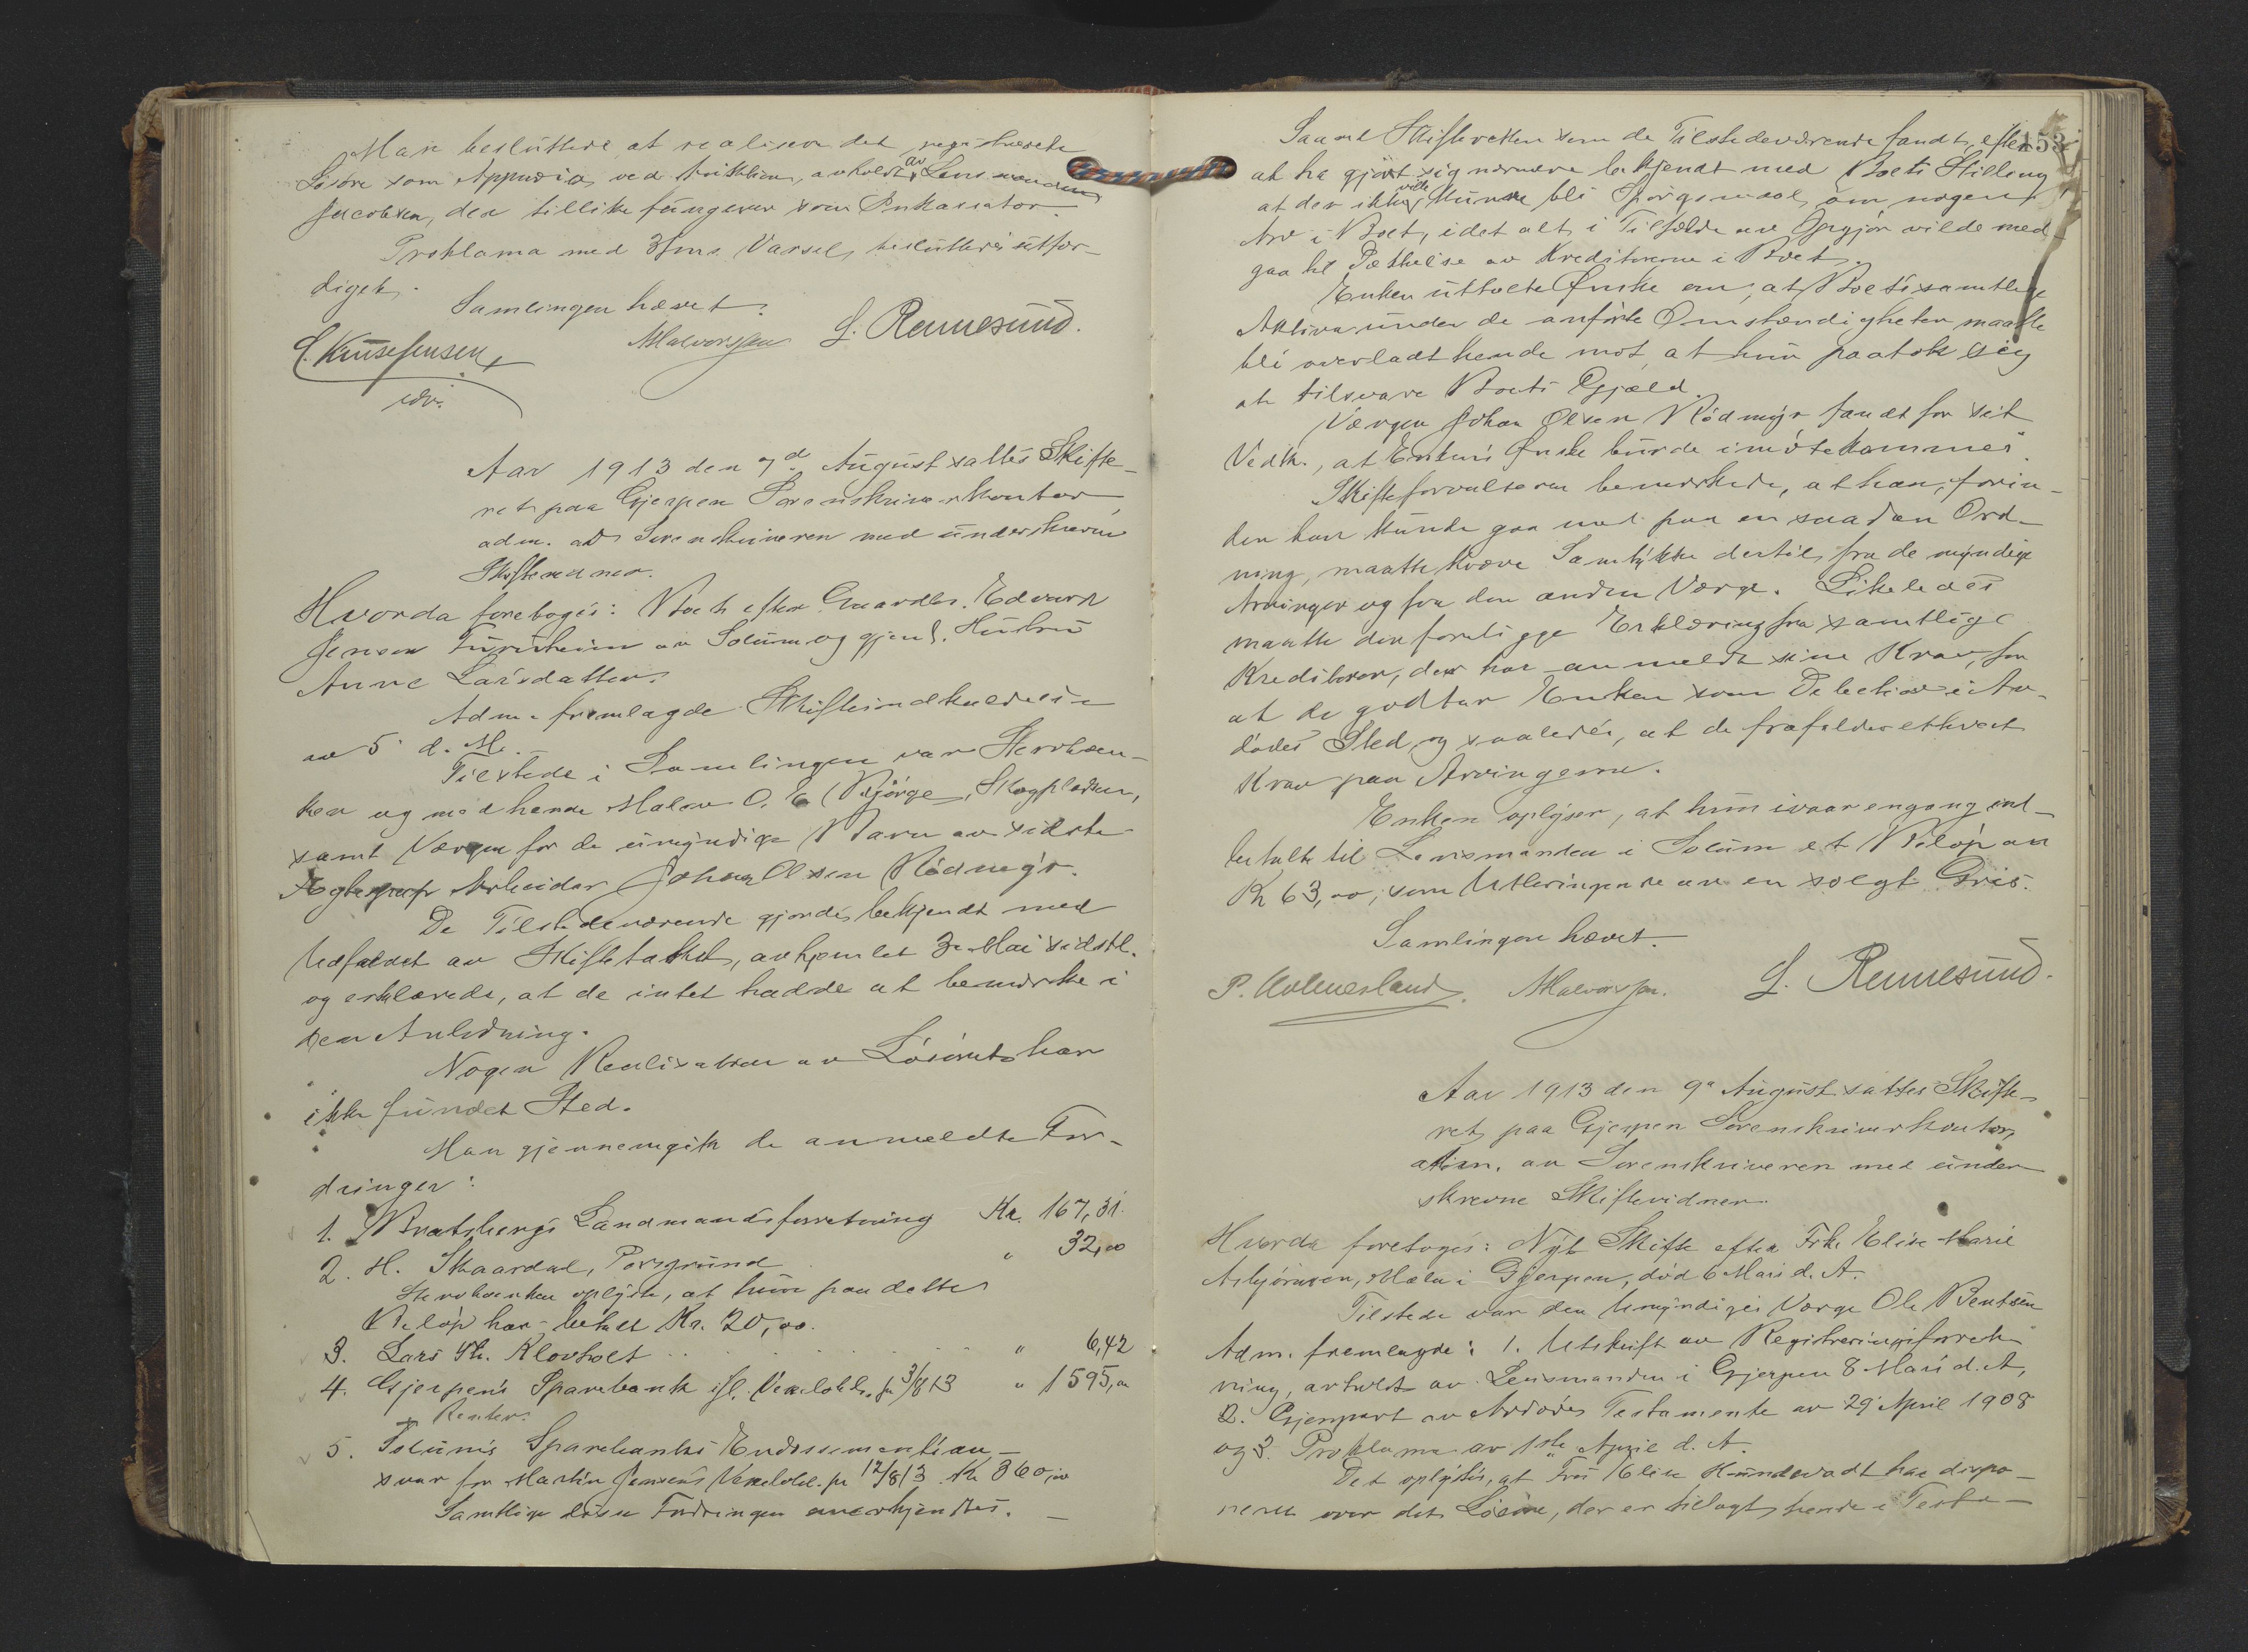 Man besluttede at realisere det registrerede
Løsøre som Appunia ved Auktion, avholdt av Lensmanden
Jacobsen, der tillike fungerer som Inkassator.
Proklama med 3 Mrs. Varsel besluttedes utfær-
diget.
Samlingen hævet.
Halvorssen L. Rennesund.
Aar 1913 den 7d August sattes Skifte-
ret paa Gjerpen Sorenskriverkontor
adm. av Sorenskriveren med underskrevne
Skiftevidner.
Hvorda foretoges: Boet efter Gaardbr. Edvard
Jensen av Solum og gjenl. Hustru
Anne Larsdatter.
Adm. fremlagde Skifteindkaldelse
av 5 d. M.
Tilstede i Samlingen var Stervboen-
ken og med hende Maler O. E. Bjørge, Skogpladsen,
samt Værgen for de umyndige Barn av sidste
Arbeider Johan Olsen Rødmyr.
De Tilstedeværende gjordes bekjendt med
Utfaldet av Skiftetakst, avhjemlet 3 Mai sidstl.
og erklærede, at de intet hadde at bemerke i
den Anledning.
Nogen Realisation av Løsøret har
ikke fundet Sted.
Man gjennemgik de anmeldte For-
dringer:
1. Bratsbergs Landmandsforretning Kr. 167,31.
2. H. Skaardal, Porsgrund " 32,00
Stervboenken oplyste, at hun paa dette
Beløp har betalt Kr. 20,00.
3. Lars Th. Klovholt " 6,42
4. Gjerpens Sparebank ifl. Vexelobl. pr 3/8 13 " 1595,00
+ Renter.
5. Solums Sparebanks Endossementsan-
svar for Martin Jensens Vexelobl. pr 12/8 13 Kr 360,00
Samtlige disse Fordringer anerkjendtes.
153
Saavel Skifteretten som de Tilstedeværende fandt, efter
at ha gjort sig nærmere bekjendt med Boets Stilling
at der ikke vilde kunne bli Spørgsmaal om nogen
Arv i Boet, idet alt i Tilfælde av Opgjør vilde med-
gaa til Dækkelse av Kreditorerne i Boet.
Enken uttalte Ønske om, at Boets samtlige
Aktiva under de anførte Omstændigheter maatte
bli overladt hende mot, at hun paatok sig
at tilsvare Boets Gjæld.
Værgen Johan Olsen Rødmyr fandt for sit
Vedk., at Enkens Ønske burde imøtekommes.
Skifteforvalteren bemerkede, at han, forin-
den han kunde gaa med paa en saadan Ord-
ning, maatte kræve Samtykke dertil fra de myndige
Arvinger og fra den anden Værge. Likeledes
maatte der foreligge Erklæring fra samtlige
Kreditorer, der har anmeldt sine Krav, for
at de godtar Enken som Debitor i Av-
dødes Sted, og saaledes, at de frafalder ethvert
Krav paa Arvingerne.
Enken oplyser, at hun ivaar engang ind-
betalte til Lensmanden i Solum et Beløp av
Kr 63,00, som Utbringende av en solgt Gris.
Samlingen hævet.
Halvorssen. L. Rennesund.
Aar 1913 den 9de August sattes Skifte-
ret paa Gjerpen Sorenskriverkontor,
adm. av Sorenskriveren med under-
skrevne Skiftevidner.
Hvorda foretoges: Nyt Skifte efter Frk. Elise Marie
Asbjørnsen, Mæla i Gjerpen, død 6 Mars d. A.
Tilstede var den Umyndiges Værge Ole Bentsen
Adm. fremlagde: 1. Utskrift av Registreringsforret-
ning, avholdt av Lensmanden i Gjerpen 8 Mars d. A,
2. Gjenpart av Avdødes Testamente av 29 April 1908
og 3. Proklama av 1ste April d. A.
Det oplystes, at Fru Elise Kundevadt har dispo-
neret over det Løsøre, der er tillagt hende i Testa-